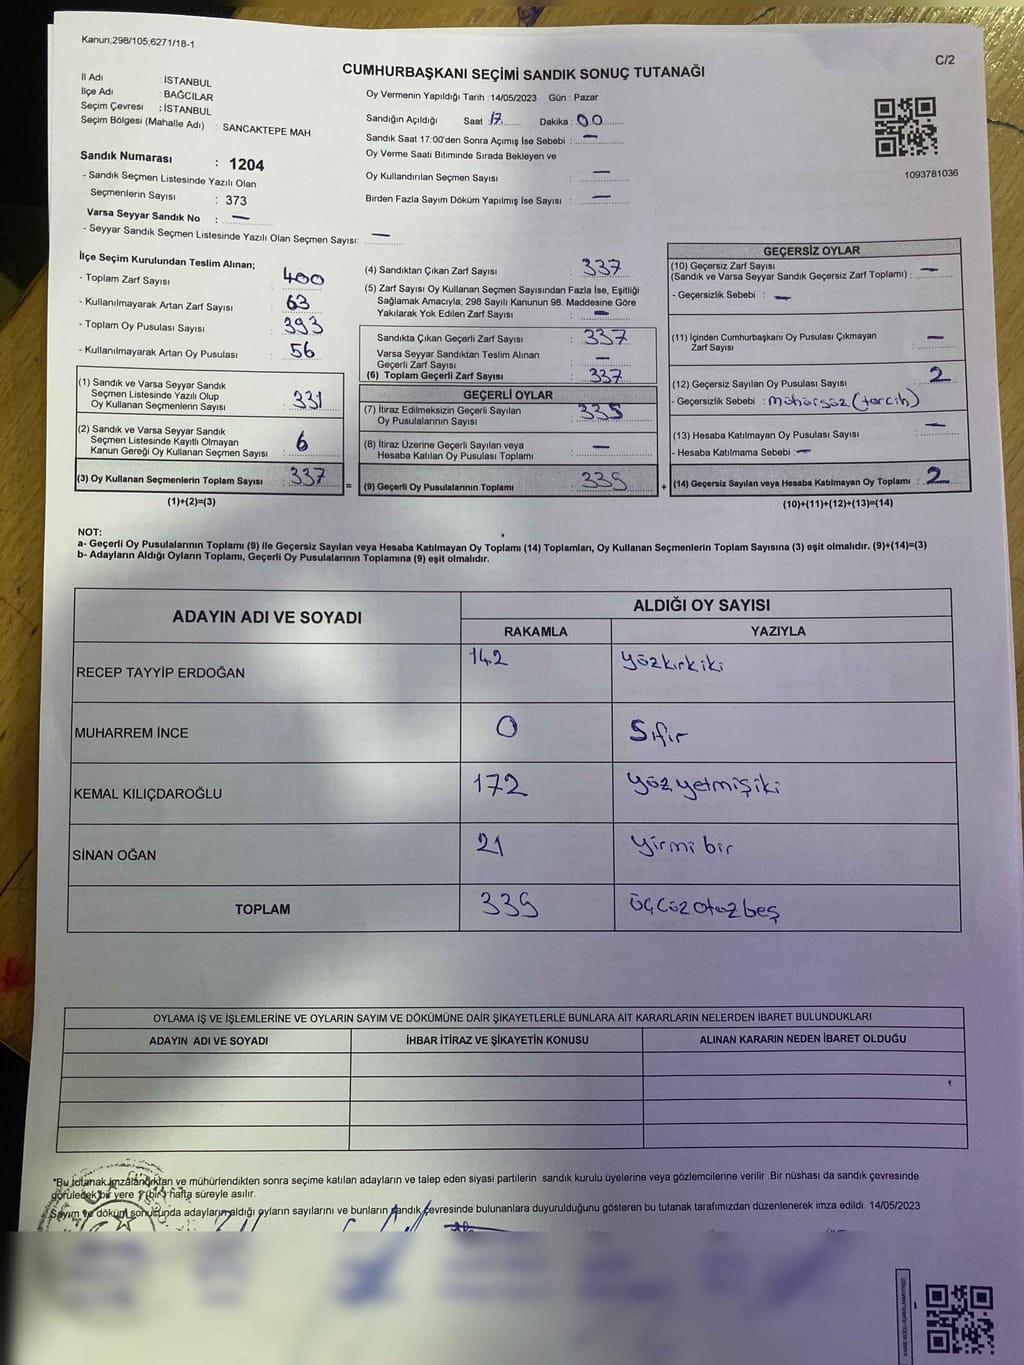 Kanun;298/105;6271/18-1
C/2
CUMHURBAŞKANI SEÇİMİ SANDIK SONUÇ TUTANAĞI
İl Adı : İSTANBUL
İlçe Adı : BAĞCILAR
Seçim Çevresi : İSTANBUL
Seçim Bölgesi (Mahalle Adı) : SANCAKTEPE MAH
Sandık Numarası : 1204
- Sandık Seçmen Listesinde Yazılı Olan
Seçmenlerin Sayısı : 373
Varsa Seyyar Sandık No : —
- Seyyar Sandık Seçmen Listesinde Yazılı Olan Seçmen Sayısı: —
Oy Vermenin Yapıldığı Tarih : 14/05/2023 Gün : Pazar
Sandığın Açıldığı Saat 17 Dakika : 00
Sandık Saat 17:00'den Sonra Açımış İse Sebebi : —
Oy Verme Saati Bitiminde Sırada Bekleyen ve
Oy Kullandırılan Seçmen Sayısı : —
Birden Fazla Sayım Döküm Yapılmış İse Sayısı : —
1093781036
İlçe Seçim Kurulundan Teslim Alınan;
- Toplam Zarf Sayısı : 400
- Kullanılmayarak Artan Zarf Sayısı : 63
- Toplam Oy Pusulası Sayısı : 393
- Kullanılmayarak Artan Oy Pusulası : 56
(1) Sandık ve Varsa Seyyar Sandık
Seçmen Listesinde Yazılı Olup
Oy Kullanan Seçmenlerin Sayısı : 331
(2) Sandık ve Varsa Seyyar Sandık
Seçmen Listesinde Kayıtlı Olmayan
Kanun Gereği Oy Kullanan Seçmen Sayısı : 6
(3) Oy Kullanan Seçmenlerin Toplam Sayısı : 337
(1)+(2)=(3)
=
(4) Sandıktan Çıkan Zarf Sayısı : 337
(5) Zarf Sayısı Oy Kullanan Seçmen Sayısından Fazla İse, Eşitliği
Sağlamak Amacıyla, 298 Sayılı Kanunun 98. Maddesine Göre
Yakılarak Yok Edilen Zarf Sayısı : —
Sandıkta Çıkan Geçerli Zarf Sayısı : 337
Varsa Seyyar Sandıktan Teslim Alınan
Geçerli Zarf Sayısı : —
(6) Toplam Geçerli Zarf Sayısı : 337
GEÇERLİ OYLAR
(7) İtiraz Edilmeksizin Geçerli Sayılan
Oy Pusulalarının Sayısı : 335
(8) İtiraz Üzerine Geçerli Sayılan veya
Hesaba Katılan Oy Pusulası Toplamı : —
(9) Geçerli Oy Pusulalarının Toplamı : 335
+
GEÇERSİZ OYLAR
(10) Geçersiz Zarf Sayısı
(Sandık ve Varsa Seyyar Sandık Geçersiz Zarf Toplamı) : —
- Geçersizlik Sebebi : —
(11) İçinden Cumhurbaşkanı Oy Pusulası Çıkmayan
Zarf Sayısı : —
(12) Geçersiz Sayılan Oy Pusulası Sayısı : 2
- Geçersizlik Sebebi : mühürsüz (tercih)
(13) Hesaba Katılmayan Oy Pusulası Sayısı : —
- Hesaba Katılmama Sebebi : —
(14) Geçersiz Sayılan veya Hesaba Katılmayan Oy Toplamı : 2
(10)+(11)+(12)+(13)=(14)
NOT:
a- Geçerli Oy Pusulalarının Toplamı (9) ile Geçersiz Sayılan veya Hesaba Katılmayan Oy Toplamı (14) Toplamları, Oy Kullanan Seçmenlerin Toplam Sayısına (3) eşit olmalıdır. (9)+(14)=(3)
b- Adayların Aldığı Oyların Toplamı, Geçerli Oy Pusulalarının Toplamına (9) eşit olmalıdır.
ADAYIN ADI VE SOYADI
ALDIĞI OY SAYISI
RAKAMLA YAZIYLA
RECEP TAYYİP ERDOĞAN 142 yüzkırkiki
MUHARREM İNCE 0 Sıfır
KEMAL KILIÇDAROĞLU 172 yüzyetmişiki
SİNAN OĞAN 21 yirmi bir
TOPLAM 335 üçcüz otuz beş
OYLAMA İŞ VE İŞLEMLERİNE VE OYLARIN SAYIM VE DÖKÜMÜNE DAİR ŞİKAYETLERLE BUNLARA AİT KARARLARIN NELERDEN İBARET BULUNDUKLARI
ADAYIN ADI VE SOYADI İHBAR İTİRAZ VE ŞİKAYETİN KONUSU ALINAN KARARIN NEDEN İBARET OLDUĞU
*Bu tutanak imzalandıktan ve mühürlendikten sonra seçime katılan adayların ve talep eden siyasi partilerin sandık kurulu üyelerine veya gözlemcilerine verilir .Bir nüshası da sandık çevresinde
görülecek bir yere 1 (bir) hafta süreyle asılır.
Sayım ve döküm sonucunda adayların aldığı oyların sayılarını ve bunların sandık çevresinde bulunanlara duyurulduğunu gösteren bu tutanak tarafımızdan düzenlenerek imza edildi. 14/05/2023